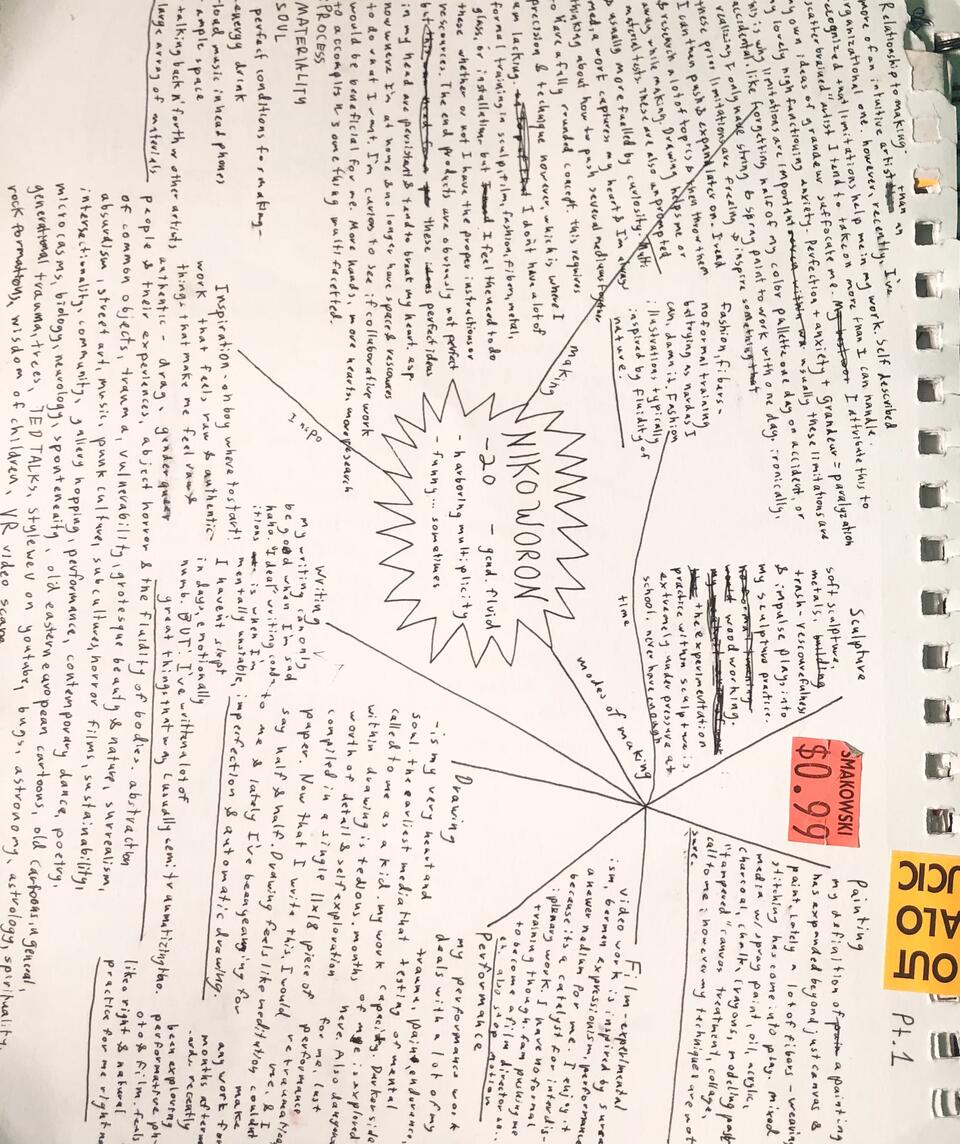 Relationship to making- than an
more of an intuitive artist
organizational one. however, recently, I've
recognized that limitations help me in my work. Self described
"scatterbrained" artist I tend to take on more than I can handle.
my own ideas of grandeur suffocate me. I attribute this to
my lovely high functioning anxiety. Perfection + anxiety + Grandeur = paralyzation
this is why limitations are important usually these limitations are
accidental like forgetting half of my color pallette one day on accident, or
realizing I only have string & spray paint to work with one day, ironically,
these prior limitations are freeing & inspire something
I can then push & expand later on. I read
& research a lot of topics & then throw them
away while making. Drawing helps me or
material tests. These are also unprompted
& usually more fuelled by curiosity. Multi
media work captures my heart & I'm always
thinking about how to push several mediums together
to have a fully rounded concept. this requires
precision & technique however, which is where I
am lacking. I don't have a lot of
formal training in sculpt, film, fashion, fibers, metal,
glass, or installation but I feel the need to do
these whether or not I have the proper instructions or
resources. The end products are obviously not perfect
but these perfect ideas
in my head are persistent & tend to break my heart. esp
now where I'm at home & no longer have space & resources
to do what I want. I'm curious to see if collaborative work
would be beneficial for me. More hands, more hearts, more research
to accomplish something multifacetted.
PROCESS
MATERIALITY
SOUL
perfect conditions for making-
-energy drink
-loud music in headphones
-ample space
-talking back n' forth w other artists
-large array of materials
making
fashion, fibers-
no formal training
but trying as hard as I
can, damn it. Fashion
illustrations typically
inspired by fluidity of
nature.
NIKO WORON
-20 - gend. fluid
- harboring multiplicity
- funny... sometimes
inspo
Inspiration- oh boy where to start!
work that feels raw & authentic
things that make me feel raw &
authentic - drag, genderqueer
people & their experiences, abject horror & the fluidity of bodies. abstraction
of common objects, trauma, vulnerability, grotesque beauty & nature, surrealism,
absurdism, street art, music, punk culture, subcultures, horror films, sustainability,
intersectionality, community, gallery hopping, performance, contemporary dance, poetry,
microcosms, biology, neurology, spontaneity, old eastern european cartoons, old cartoons in general,
generational trauma, trees, TED TALKS, stylewev on youtube, bugs, astronomy, astrology, spirituality,
rock formations, wisdom of children, VR video scape
modes of making
Sculpture
soft sculpture,
metals, building
trash- resourcefulness
& impulse plays into
my sculpture practice.
woodworking.
the experimentation
practice within sculpt is
extremely under pressure at
school. never have enough
time
writing
my writing can only
be good when I'm sad
haha. "Ideal" writing cond-
itions is when I'm
mentally unstable,
I haven't slept
in days, emotionally
numb. BUT I've written a lot of
great things that way (usually semi traumitizing tho.
Drawing
- is my very heart and
soul. the earliest media that
called to me as a kid. my work
within drawing is tedious, months
worth of detail & self exploration
compiled in a single 11x18 piece of
paper. Now that I write this, I would
say half & half. Drawing feels like meditation
to me & lately I've been yearning for
imperfection & automatic drawing.
SMAKOWSKI
$0.99
OUT
ALO
UCIC
Pt.1
Painting
my definition of painting
has expanded beyond just canvas &
paint. Lately a lot of fibers - weaving
stitching has come into play. mixed
media w/ spray paint, oil, acrylic,
charcoal, chalk, crayons, modeling paste
"tampered" canvas treatment, collage,
call to me; however my techniques are not
sure.
Film- experimental
video work is inspired by surreal
ism, German expressionism, performance
a newer medium for me. I enjoy it
because it's a catalyst for interdis-
iplinary work. I have no formal
training though. I am pursuing
to become a film director so...
eh. also stop motion
Performance
my performance work
deals with a lot of my
trauma, pain, endurance,
testing of mental
capacity. Darker side
of me is explored
here. Also dangerous
for me, last
performance
retraumatized
me. & I
couldn't make
any work for
months afterw
ards. recently
been exploring
performative ph
oto & film. feels
like a right & natural
practice for me right now